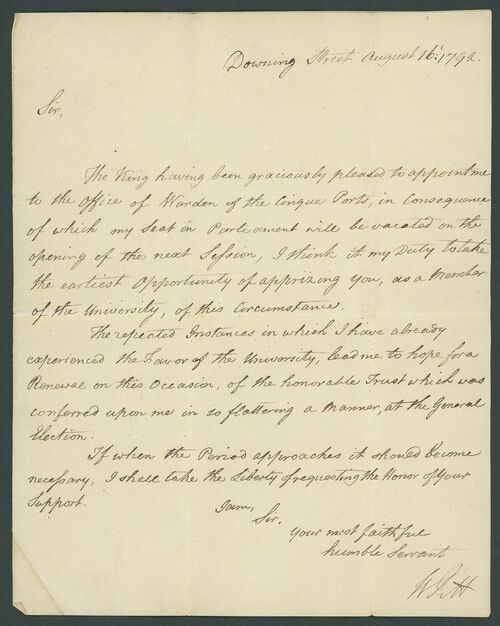 Downing Street August 16t. 1792.
Sir,
The King having been graciously pleased to appoint me
to the Office of Warden of the Cinque Ports, in Consequence
of which my Seat in Parliament will be vacated on the
opening of the next Session, I think it my Duty to take
the earliest Opportunity of apprizing you, as a Member
of the University, of this Circumstance.
The repeated Instances in which I have already
experienced the Favor of the University, lead me to hope for a
Renewal on this Occasion, of the honorable Trust which was
conferred upon me in so flattering a Manner, at the General
Election.
If when the Period approaches it should become
necessary, I shall take the Liberty of requesting the Honor of Your
Support.
I am,
Sir,
Your most faithful
humble Servant
W Pitt